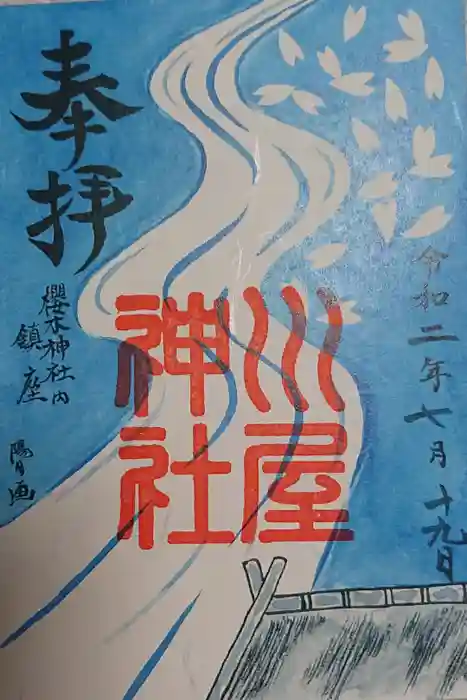 奉拝
令和二年七月十九日
川屋
神社
櫻木神社内
鎮座
陽画